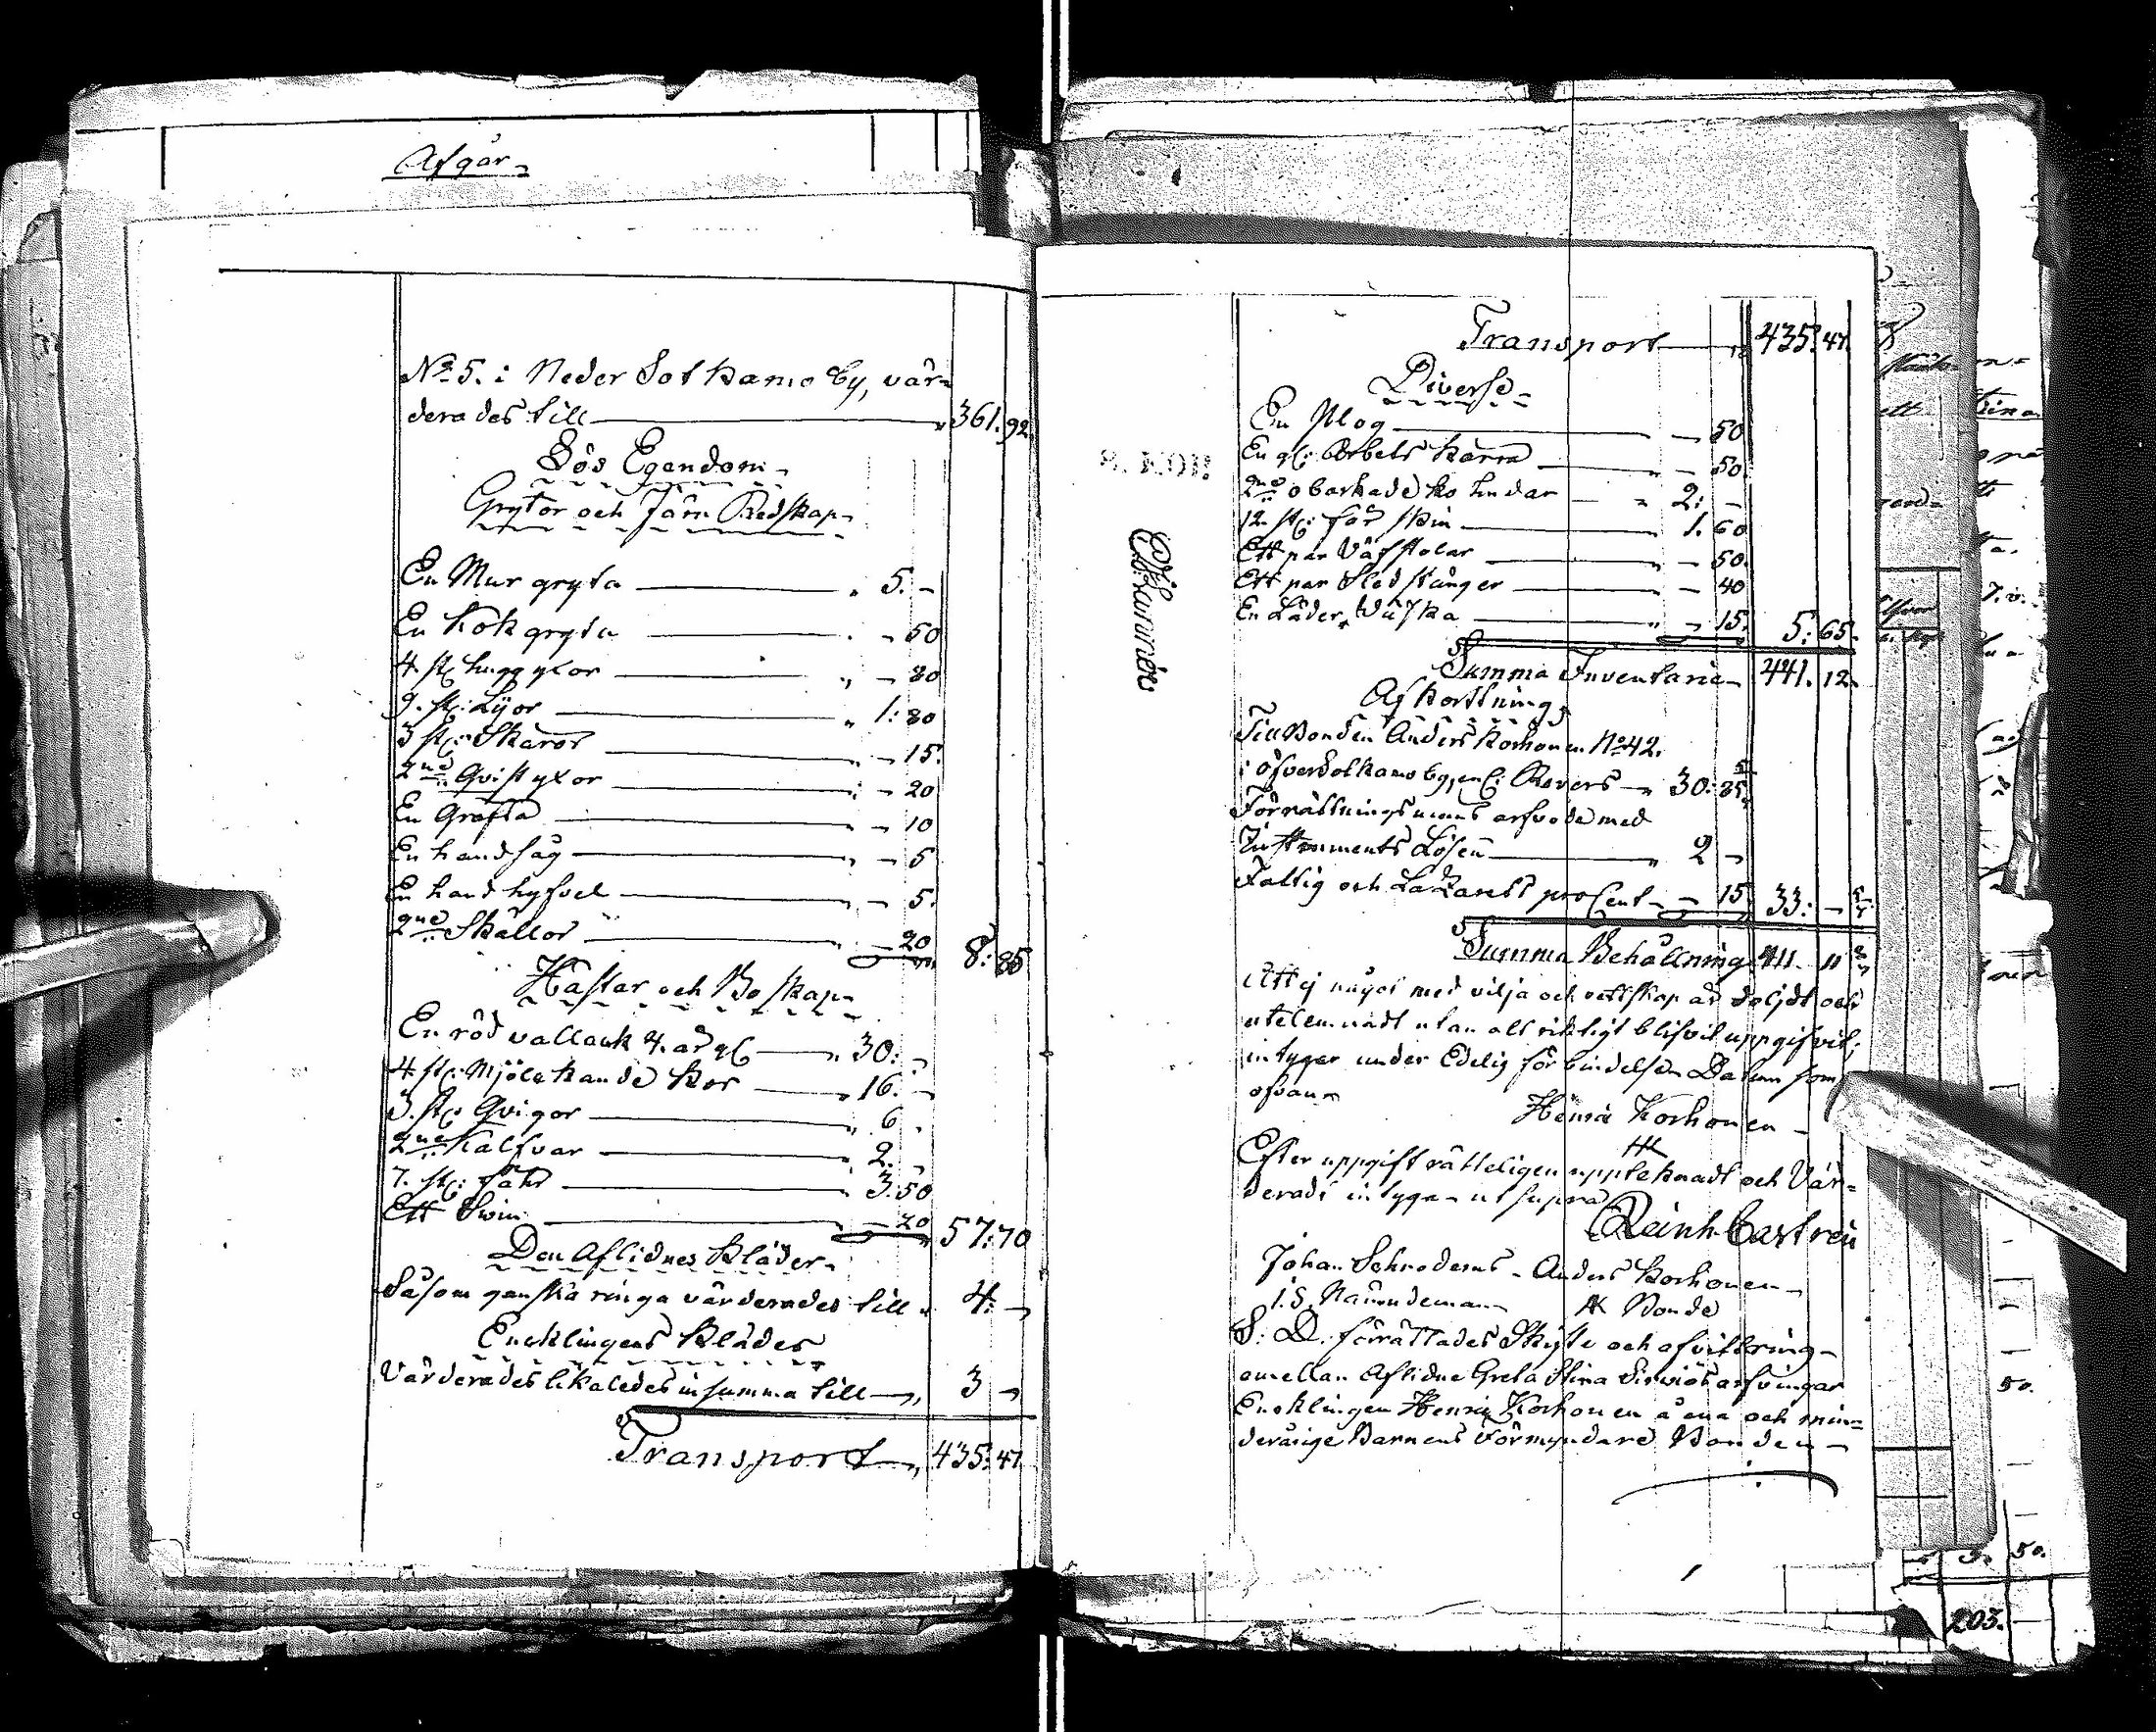 Afgår
No 5. i Neder Sotkamo by, vär-
derades till 361. 92.
Lös Egendom
Grytor och Järn Redskap
En Mur gryta " 5. -
En Kok gryta " - 50
4 st. huggyxor " - 80
9. st: Lijor " 1: 80
3 st: Skäror " - 15.
2ne Qvistyxor " - 20
En Gräfta " - 10
En handsåg " - 5
En hand hyfvel " - 5.
2ne Skällor - 20 8: 85
Hästar och Boskap
En röd vallack 7. år gl " 30. -
4 st: Mjölckande Kor " 16. -
3. st: Qvigor " 6 -
2ne Kalfvar " 2. -
7. st: fåhr " 3. 50
Ett Swin - 20 57: 70
Den Aflidnes Kläder
Såsom ganska ringa värderades till " 4: -
Encklingens Kläder
Värderades likaledes in summa till " 3 -
Transport " 435: 47
Transport " 435: 47.
Diverse
En Plog " - 50
En gl: Arbets Kärra " - 50.
2ne obarkade ko hudar " 2: -
12. st: får skin " 1. 60
Ett par Väfstolar " - 50.
Ett par Slädstänger " - 40
En Läder Väska " - 15. 5: 65.
Summa Inventarie 441. 12.
Afkortning
Till Bonden Anders Korhonen No 42.
i öfverSotkamo by, en l: Revers " 30: 85
Förrättningsmans arfvode med
Instruments Lösen " 2 -
Fattig och Lazaretts procent - 15 33: -
Summa Behållning 411. 11
Att ej något med vilja och vettskap är döljdt och
utelemnadt utan alt riktigt blifvit uppgifvit;
intygar under Edelig förbindelse Datum som
ofvan
Henric Korhonen
HK
Efter uppgift rätteligen uptecknadt och Vär-
deradt intyga ut supra
Reinh. Castrén
Johan Schroderus Anders Korhonen
I. S. Nämndeman AK Bonde
S. D. förrättades Skifte och afvittring
emellan Aflidne Greta Stina arfvingar
Encklingen Henric Korhonen å ena och min-
derårige Barnens Förmyndare Bonden
50.
5. 50.
203.